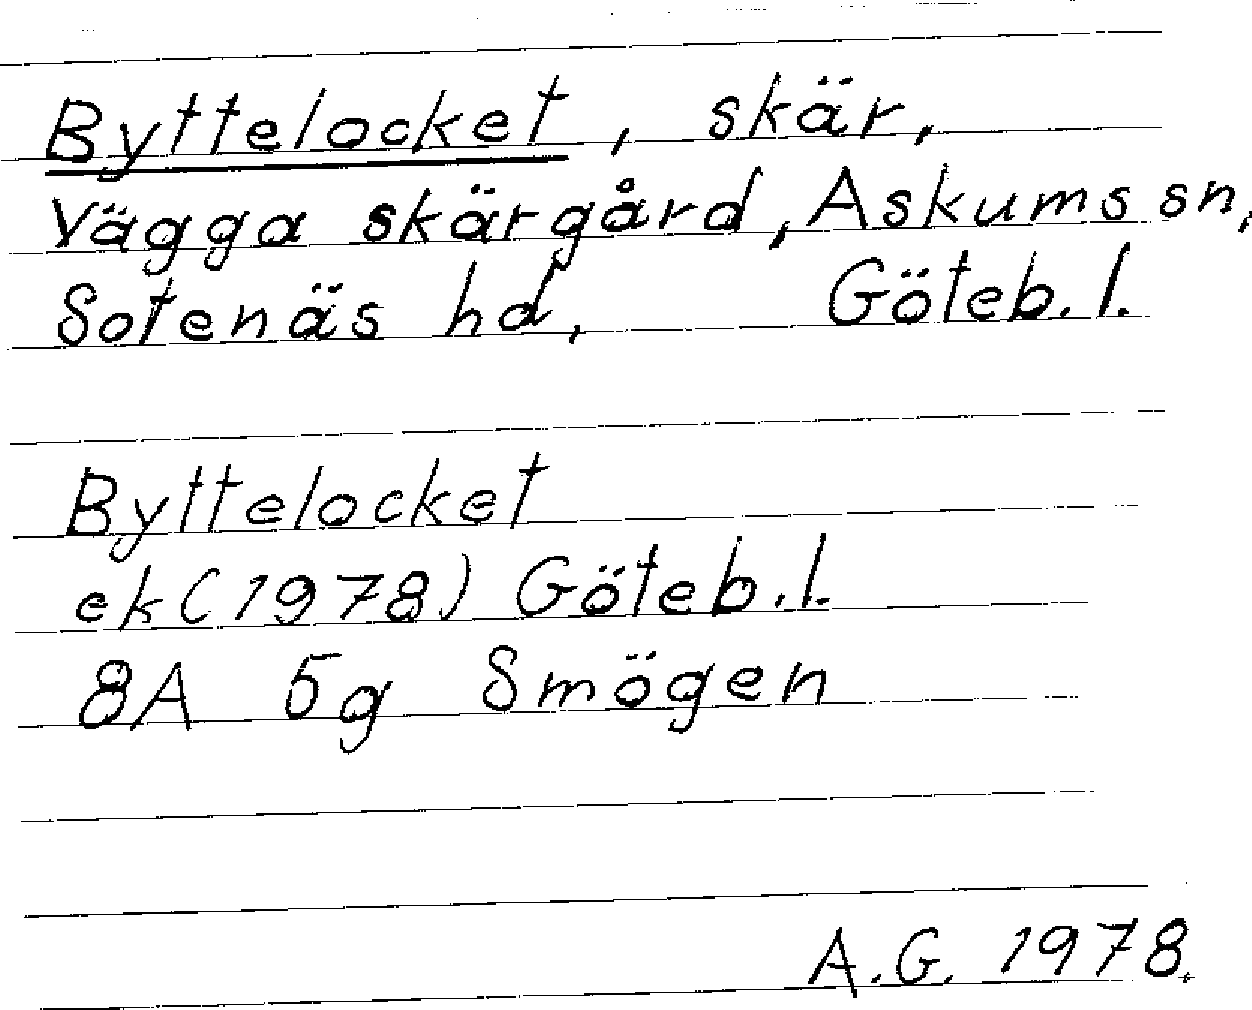 Byttelocket, skär,
Vägga skärgård, Askums sn,
Sotenäs hd, Göteb. l.
Byttelocket
ek (1978) Göteb. l.
8A 5g Smögen
A.G. 1978.